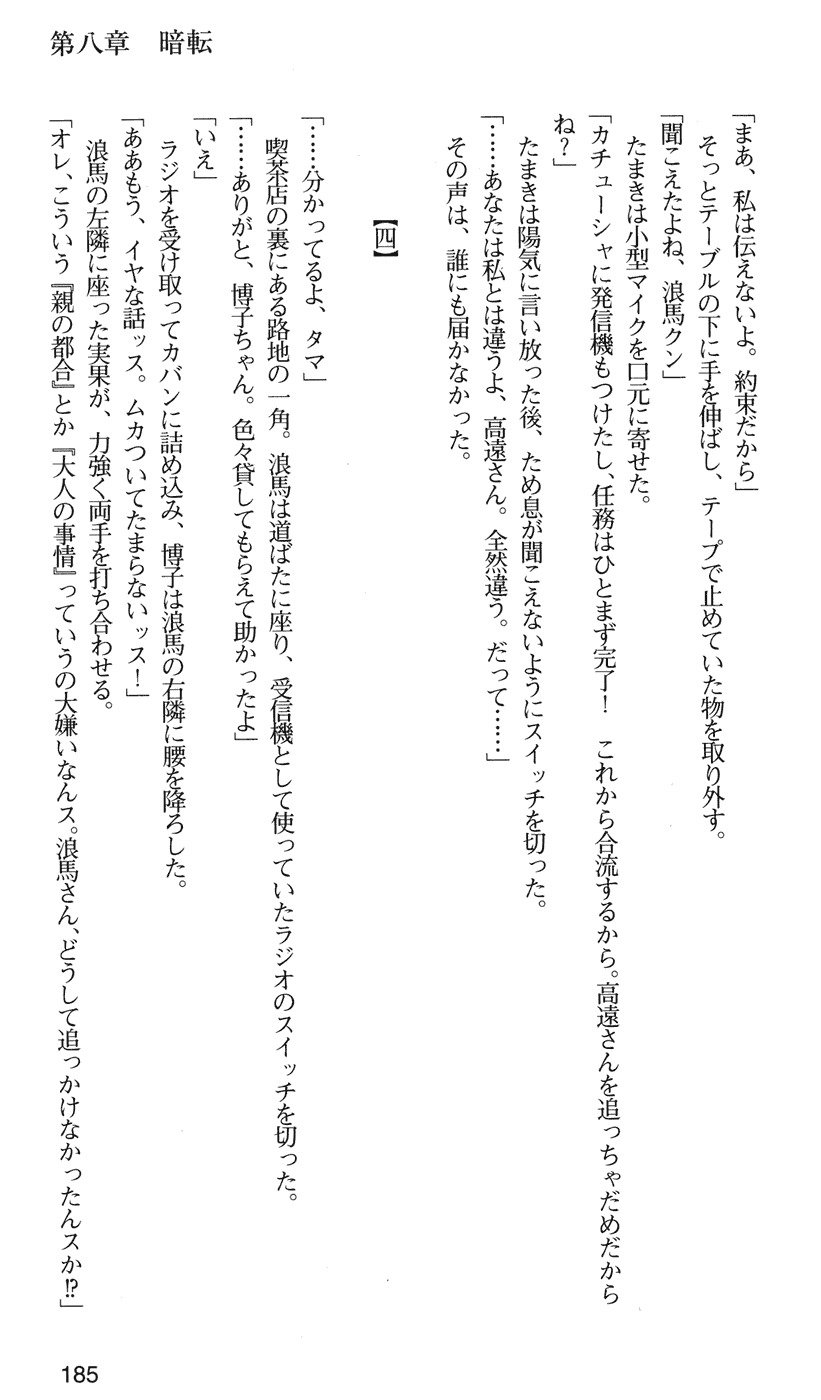 第八章　暗転
「まあ、私は伝えないよ。約束だから」
そっとテーブルの下に手を伸ばし、テープで止めていた物を取り外す。
「聞こえたよね、浪馬クン」
たまきは小型マイクを口元に寄せた。
「カチューシャに発信機もつけたし、任務はひとまず完了！　これから合流するから。高遠さんを追っちゃだめだから
ね？」
たまきは陽気に言い放った後、ため息が聞こえないようにスイッチを切った。
「……あなたは私とは違うよ、高遠さん。全然違う。だって……」
その声は、誰にも届かなかった。
【四】
「……分かってるよ、タマ」
喫茶店の裏にある路地の一角。浪馬は道ばたに座り、受信機として使っていたラジオのスイッチを切った。
「……ありがと、博子ちゃん。色々貸してもらえて助かったよ」
「いえ」
ラジオを受け取ってカバンに詰め込み、博子は浪馬の右隣に腰を降ろした。
「ああもう、イヤな話ッス。ムカついてたまらないッス！」
浪馬の左隣に座った実果が、力強く両手を打ち合わせる。
「オレ、こういう『親の都合』とか『大人の事情』っていうの大嫌いなんス。浪馬さん、どうして追っかけなかったんスか⁉」
185